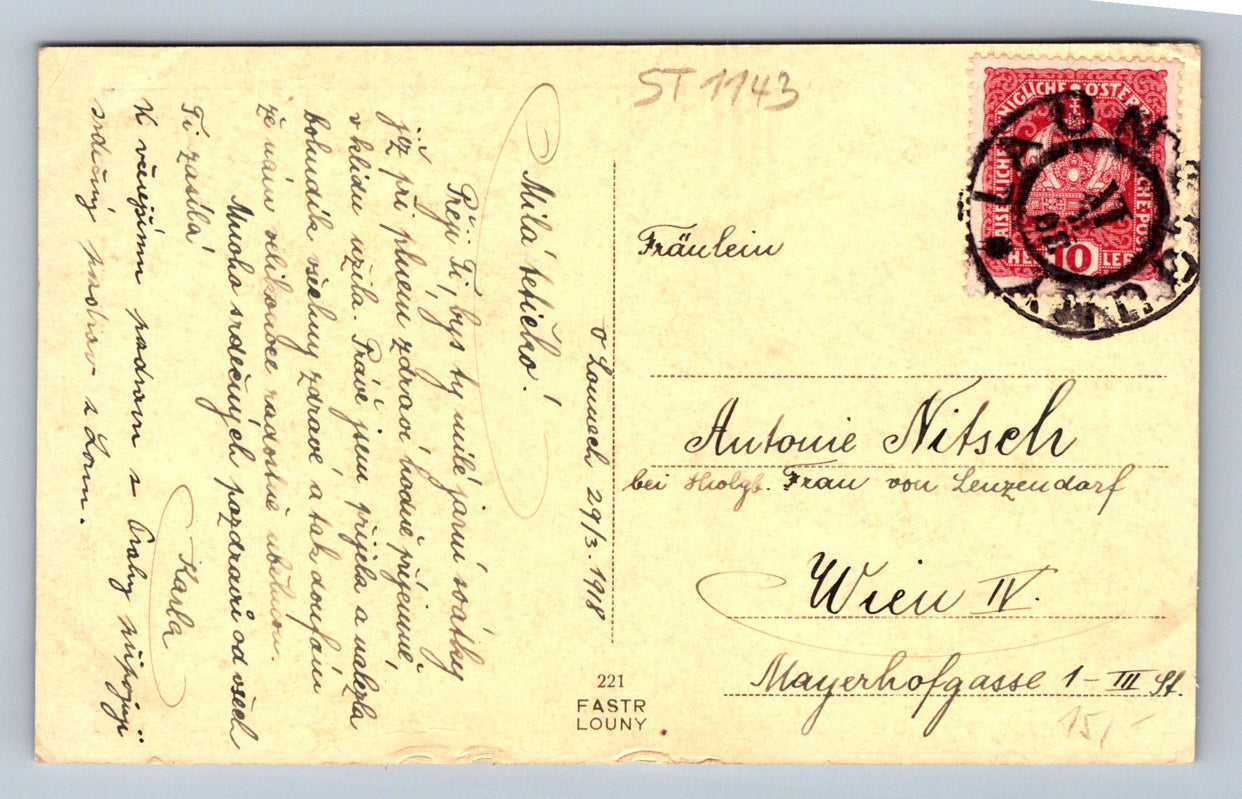 ST 1143
V Lounech 29/3. 1918
Milá tetičko!
Přeji Ti, bys ty milé jarní svátky
již při plném zdraví hodně příjemně,
v klidu užila. Právě jsem přijela a nalezla
bohudík všechny zdravé a tak doufám
že nám velikonoce radostně uběhnou.
Mnoho srdečných pozdravů od všech
Ti zasílá
Karla
K veřejším pozdravům z Prahy připojuji
srdečný pozdrav z Loun.
Fräulein
Antonie Nitsch
bei Frau von Lenzendorf
Wien IV.
Mayerhofgasse 1 - III St.
15/-
221
FASTR
LOUNY
KAISERLICHE KÖNIGLICHE ÖSTERREICHISCHE POST
HELLER
10
LAUN
LOUNY